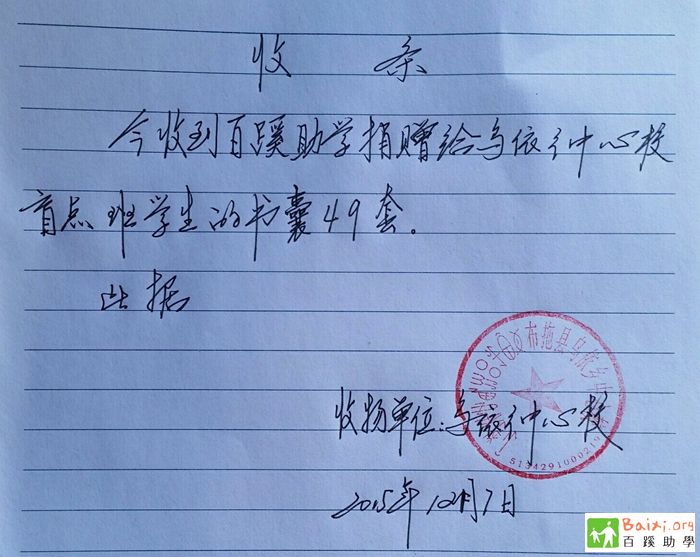 收 条
今收到百蹊助学捐赠给乌依乡中心校
盲点班学生的书囊49套。
此据
布拖县乌依乡
收物单位:乌依乡中心校
2015年12月7日
Baixi.org
百蹊助學